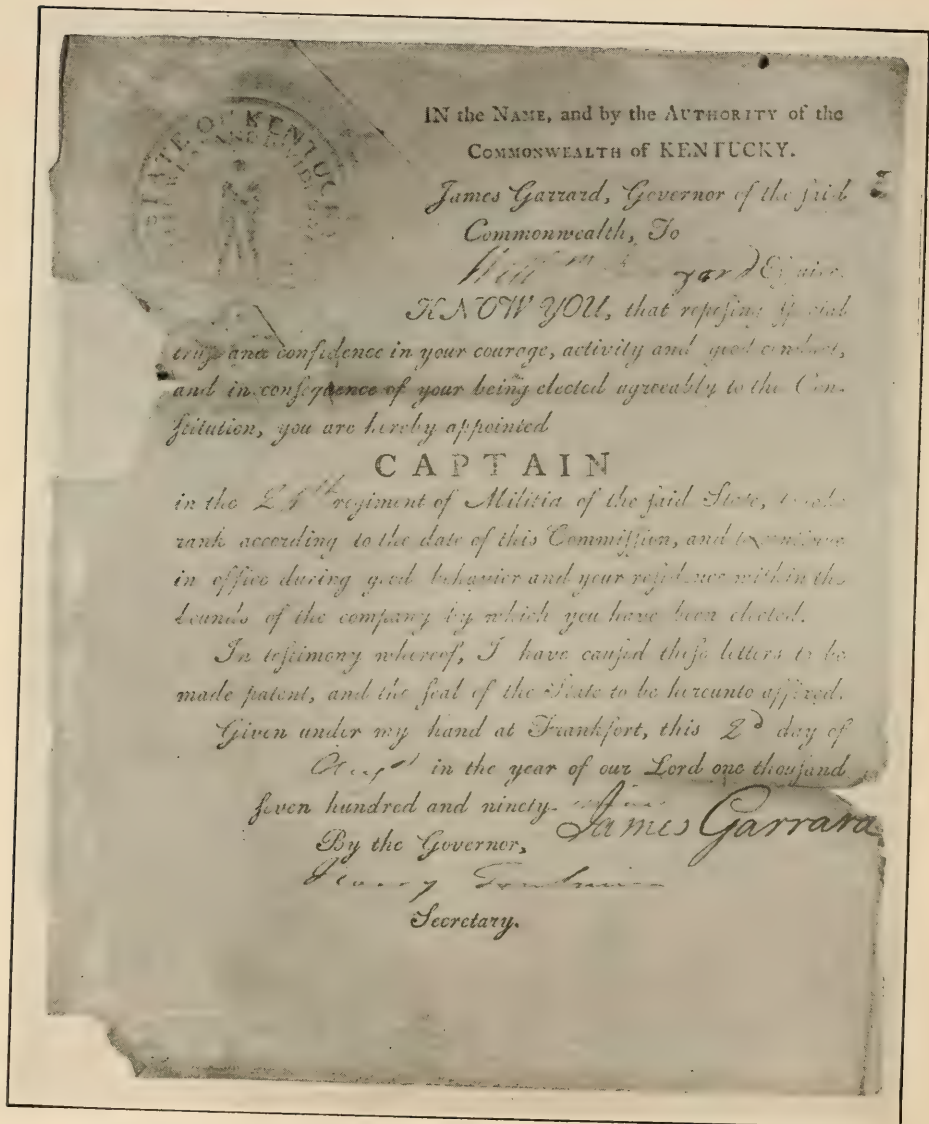 STATE OF KENTUCKY
IN the NAME, and by the AUTHORITY of the
COMMONWEALTH of KENTUCKY.
James Garrard, Governor of the ſaid
Commonwealth, To
KNOW YOU, that repoſing ſpecial
truſt and confidence in your courage, activity and good conduct,
and in conſequence of your being elected agreeably to the Con-
ſtitution, you are hereby appointed
CAPTAIN
in the regiment of Militia of the ſaid State, to take
rank according to the date of this Commiſſion, and to continue
in office during good behavior and your reſidence within the
bounds of the company by which you have been elected.
In teſtimony whereof, I have cauſed theſe letters to be
made patent, and the ſeal of the State to be hereunto affixed.
Given under my hand at Frankfort, this 2d day of
in the year of our Lord one thouſand
ſeven hundred and ninety-
James Garrard
By the Governor,
Secretary.